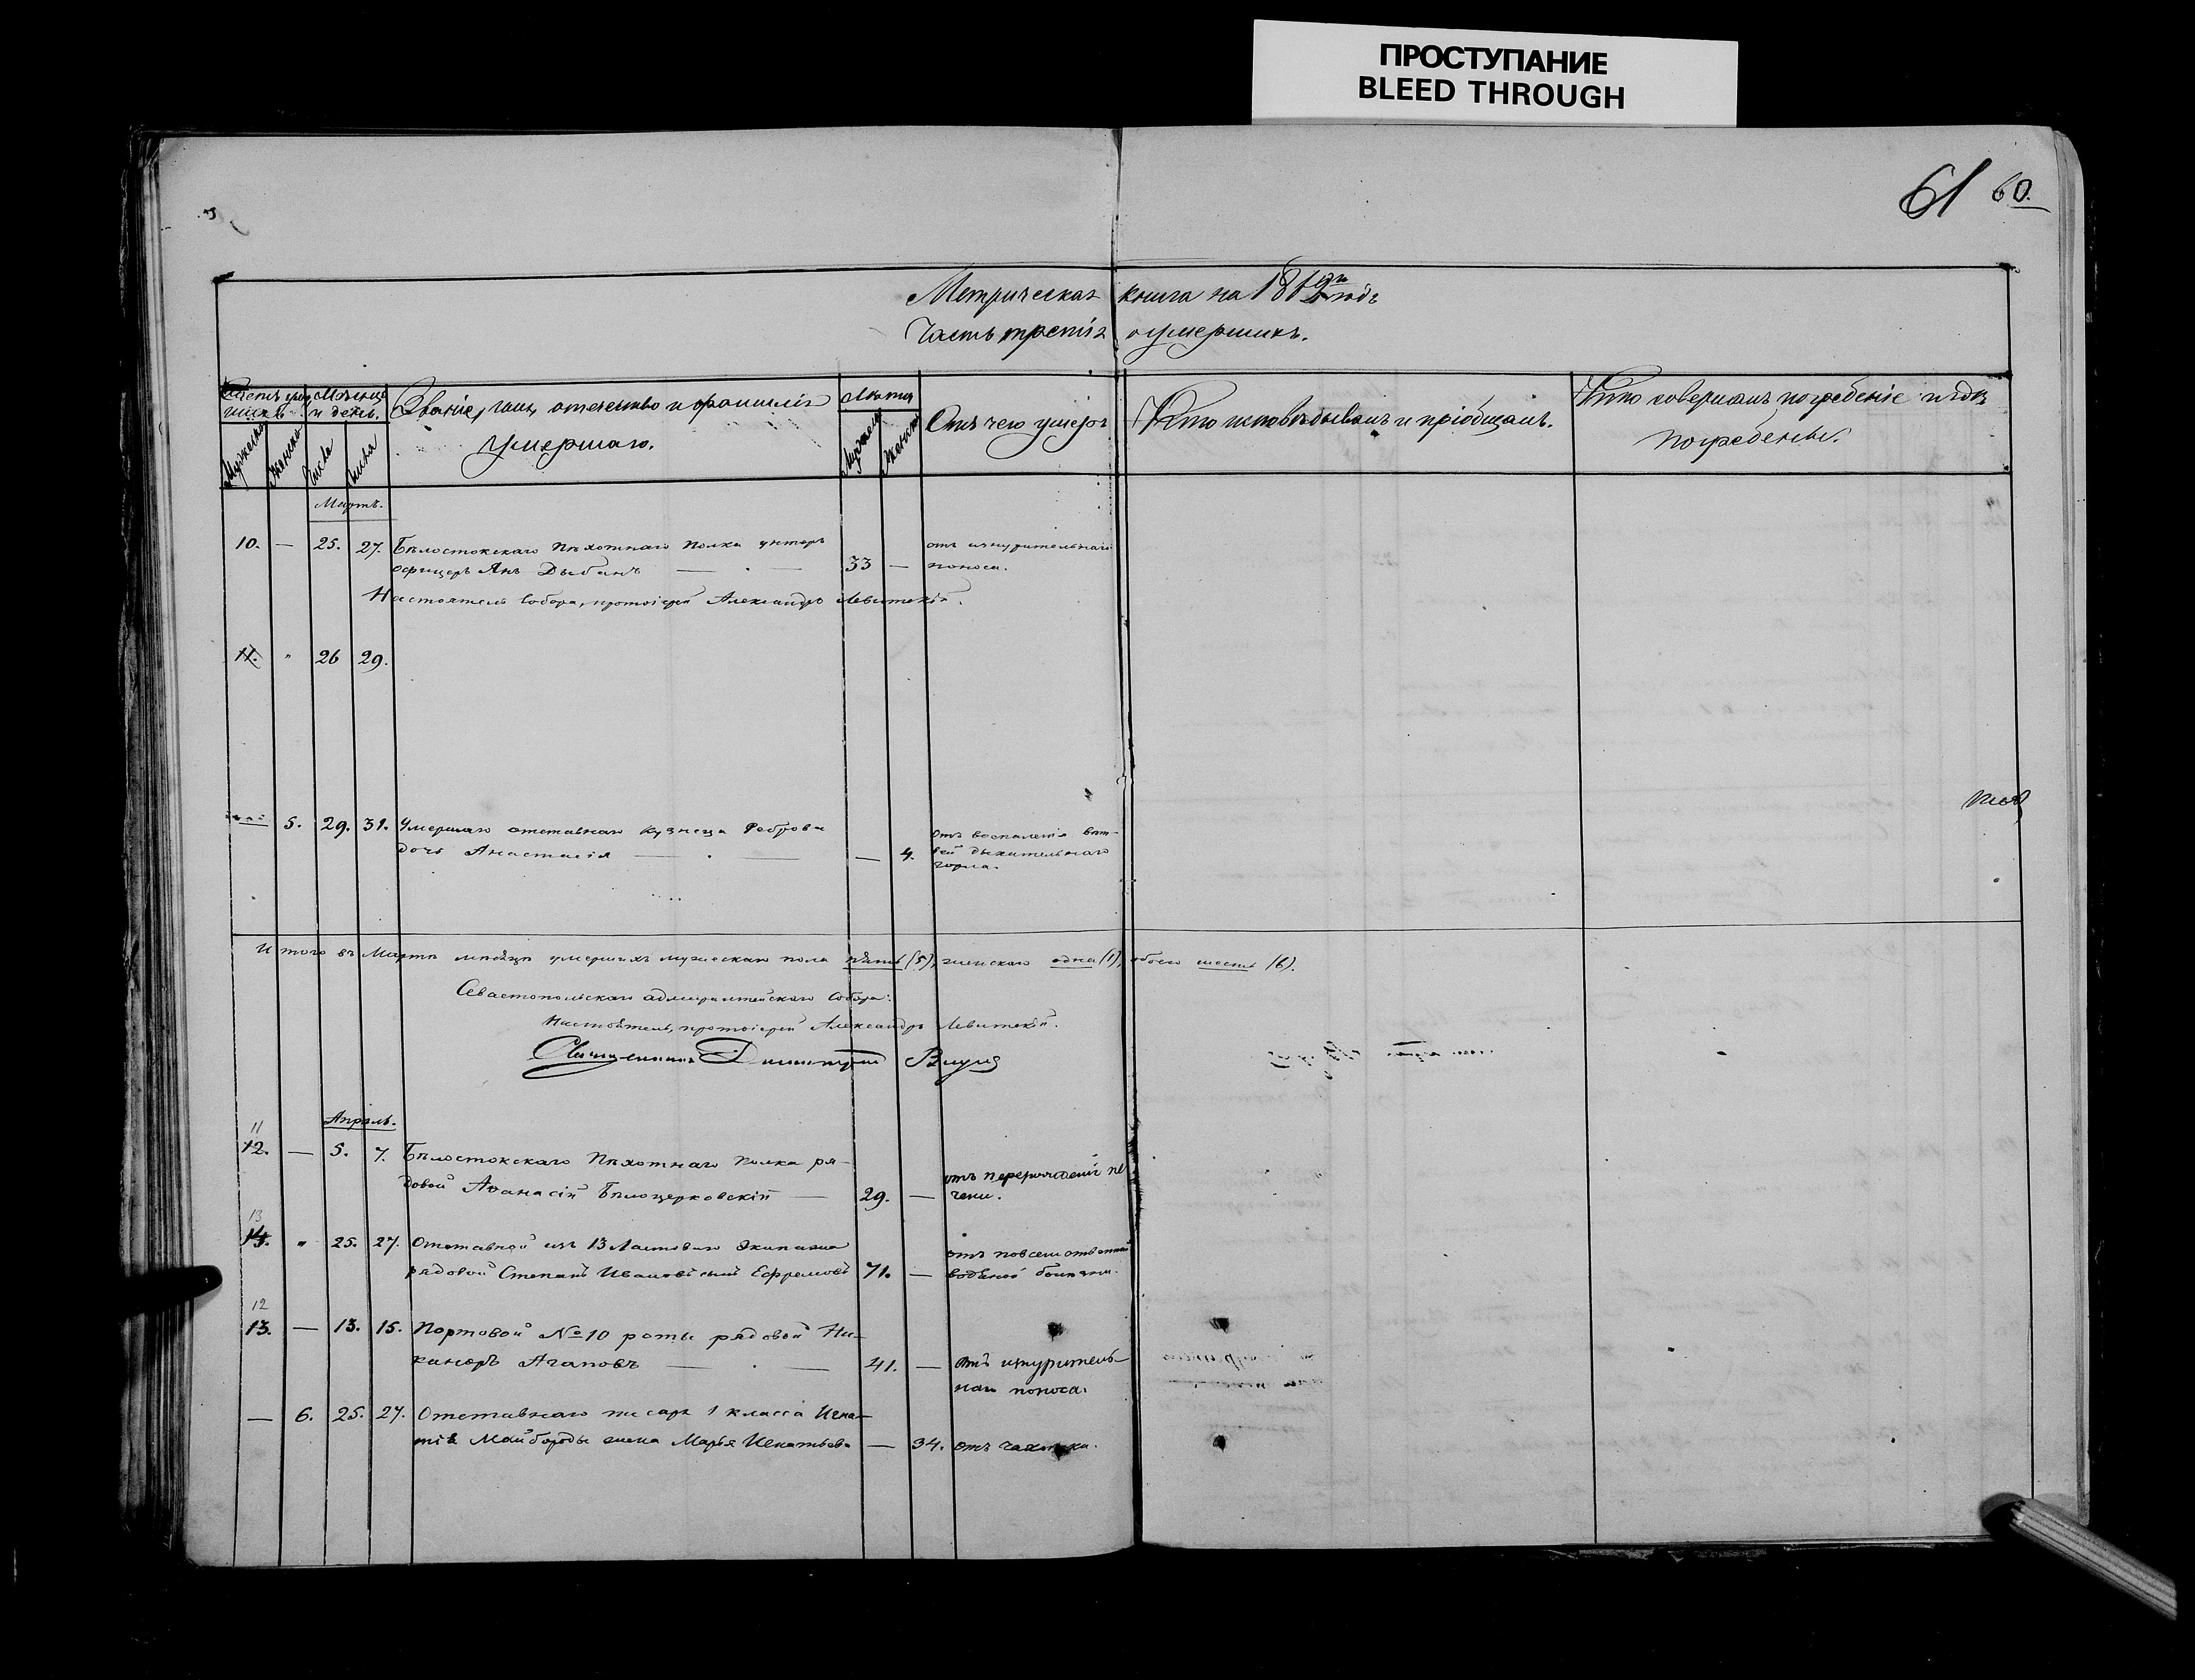 ПРОСТУПАНИЕ
BLEED THROUGH
61 60.
Метрическая книга на 18 годъ
Часть третія о умершихъ.
Счетъ умершихъ
Мѣсяцъ и день.
Званіе, чинъ, отечество и фамилія умершаго.
Лѣта
Отъ чего умеръ
Кто исповѣдывалъ и пріобщалъ.
Кто совершалъ погребеніе и гдѣ погребены.
Мужеска Женска Числа Числа Мужеск Женск
Мартъ.
10. — 25. 27. Бѣлостокскаго Пѣхотнаго Полка унтеръ отъ изнурительнаго
офицеръ Янъ Дыбанъ — . — 33 — поноса.
Настоятель Собора, протоіерей Александръ Левитскій.
11. " 26 29.
5. 29. 31. Умершаго отставнаго кузнеца Реброва отъ воспаленія вѣт-
дочь Анастасія — . — — 4. вей дыхательнаго
горла.
Итого въ Мартѣ мѣсяцѣ умершихъ мужескаго пола пять (5), женскаго одна (1), обоего шесть (6).
Севастопольскаго адмиралтейскаго Собора:
Настоятель, протоіерей Александръ Левитскій.
Священникъ Димитрій
Апрѣль.
11
12. — 5. 7. Бѣлостокскаго Пѣхотнаго Полка ря-
довой Аѳанасій Бѣлоцерковскій — 29. — отъ перерожденія пе
чени.
13
14. " 25. 27. Отставной изъ 13 Ластоваго Экипажа отъ повсемѣстной
рядовой Степанъ Ивановъ сынъ Ефремовъ 71. — водяной болѣзни.
12
13. — 13. 15. Портовой № 10 роты рядовой Ни-
каноръ Агаповъ — . — 41. — отъ изнуритель-
наго поноса.
— 6. 25. 27. Отставнаго писаря 1 класса Игна-
тія Майбороды жена Марья Игнатьева — 34. отъ чахотки.